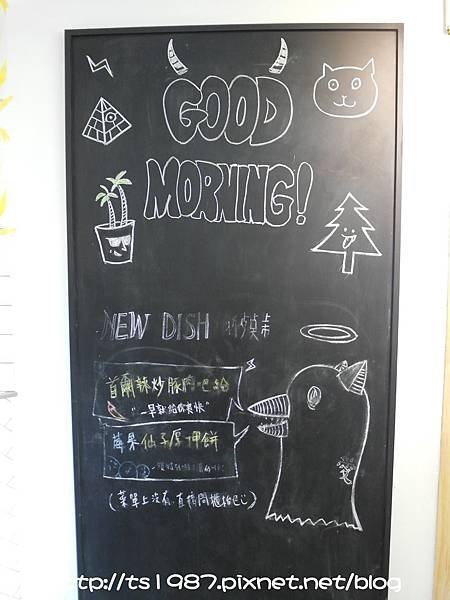 GOOD
MORNING!
NEW DISH
首爾辣炒豚肉吧
"一早就給你爽快"
蔬果仙子厚押餅
(菜單上沒有,直接問櫃檯吧)
http://ts1987.pixnet.net/blog